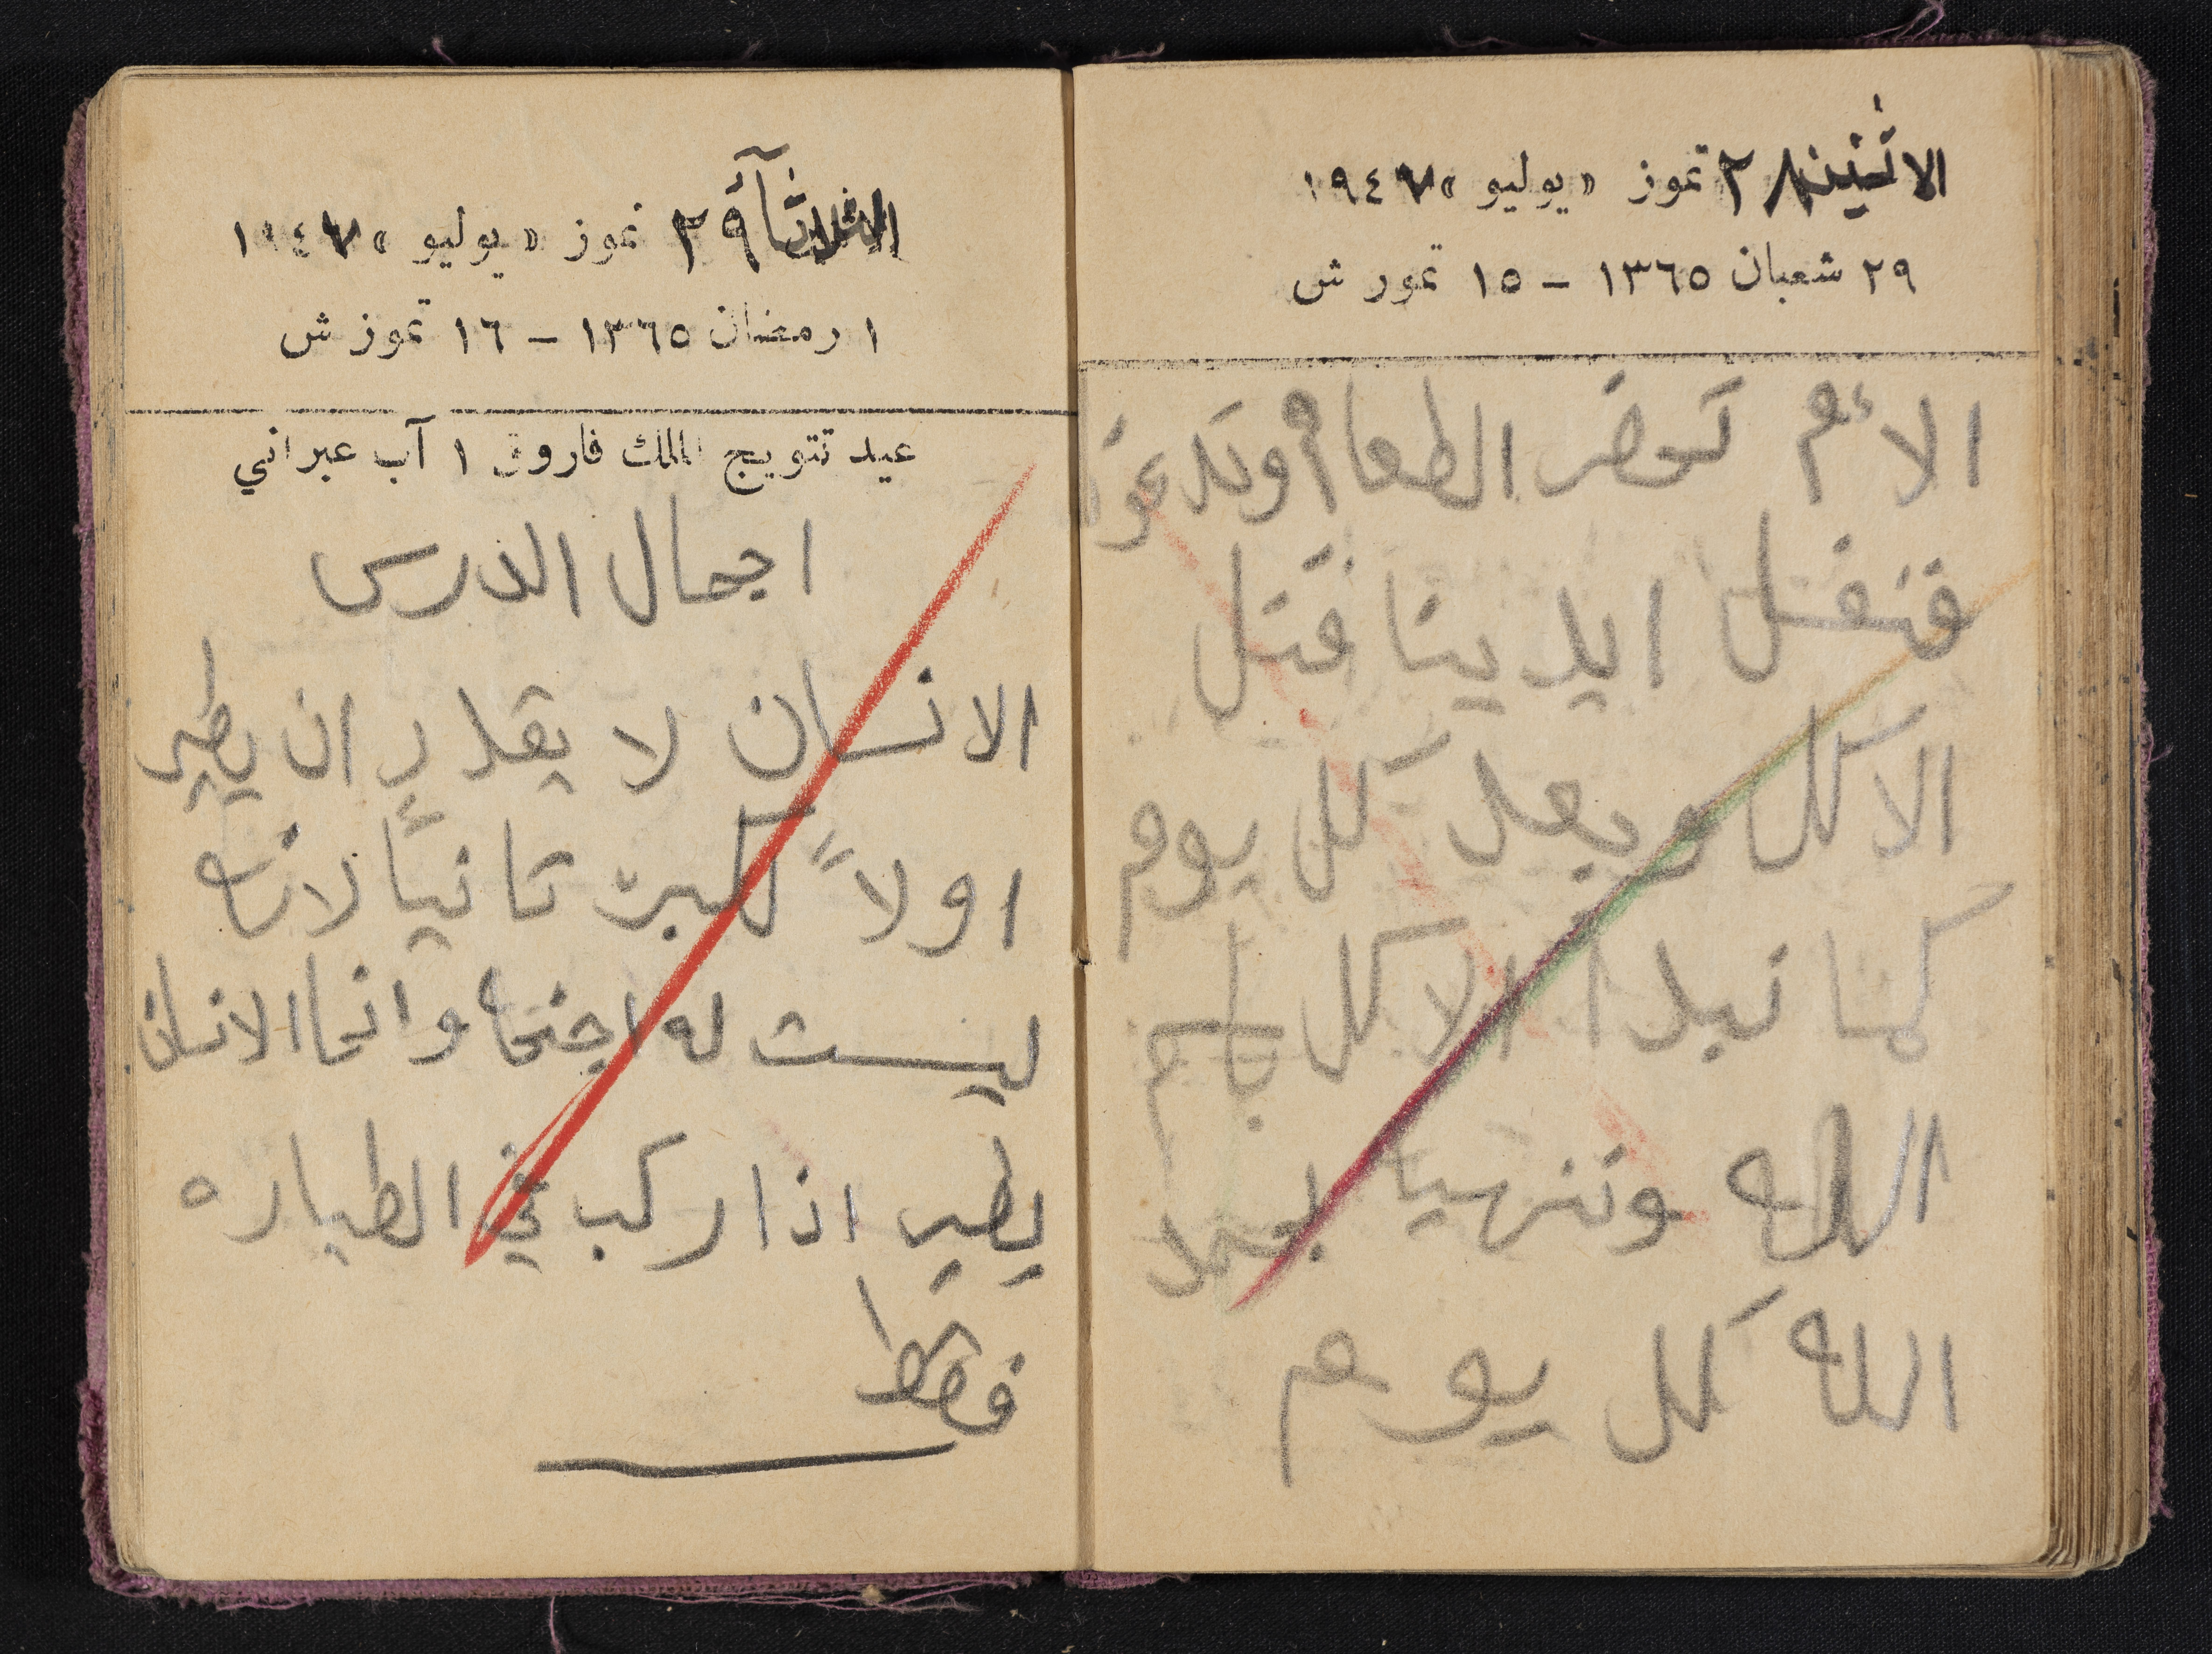 الاثنين ٢٨ تموز «يوليو» ١٩٤٧
٢٩ شعبان ١٣٦٥ – ١٥ تموز ش
الأم تحضر الطعام وتدعونا
فنغسل ايدينا قبل
الاكل وبعد كل يوم
كما نبدا الاكل باسم
الله وننهيا بحمد
الله كل يوم
الثلاثآء ٢٩ تموز «يوليو» ١٩٤٧
١ رمضان ١٣٦٥ – ١٦ تموز ش
عيد تتويج الملك فاروق ١ آب عبراني
اجمال الدرس
الانسان لا يقدر ان يطير
اولاً كبير تانياً لانه
ليست له اجنحا وانما الانسان
يطير اذا ركب في الطياره
فقط